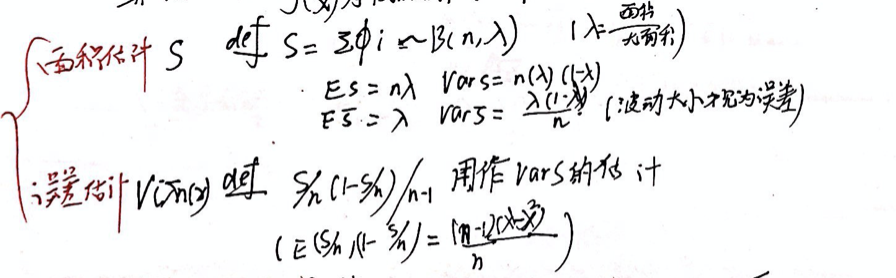 面积估计 S def S = Σφi ~ B(n,λ) (λ = 面积/大面积)
ES = nλ Var S = n(λ)(1-λ)
ES̄ = λ Var S̄ = λ(1-λ)/n (波动大小视为误差)
误差估计 V(λ̄n(x)) def S/n(1-S/n)/n-1 用作 Var S 的估计
(E(S/n)(1-S/n) = (n-1)(λ-λ²)/n)